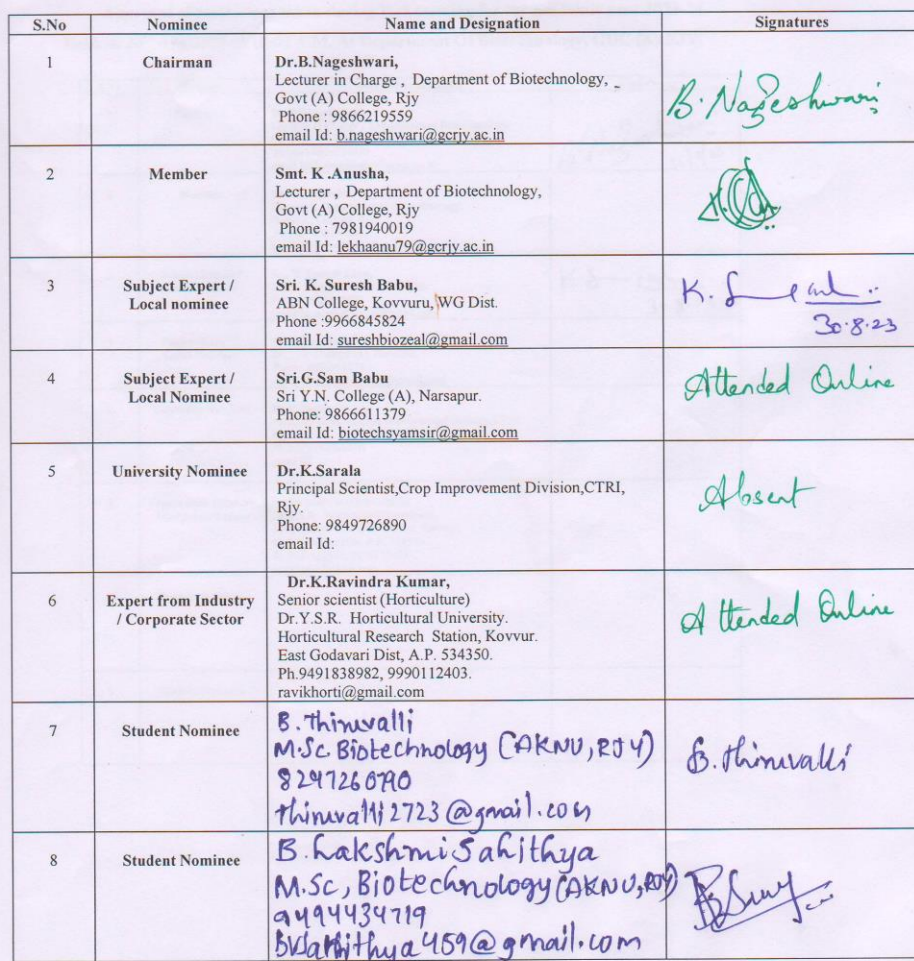 S.No Nominee Name and Designation Signatures
1 Chairman Dr.B.Nageshwari,
Lecturer in Charge , Department of Biotechnology,
Govt (A) College, Rjy
Phone : 9866219559
email Id: b.nageshwari@gcrjy.ac.in
B. Nageshwari
2 Member Smt. K .Anusha,
Lecturer , Department of Biotechnology,
Govt (A) College, Rjy
Phone : 7981940019
email Id: lekhaanu79@gcrjy.ac.in
3 Subject Expert / Local nominee Sri. K. Suresh Babu,
ABN College, Kovvuru, WG Dist.
Phone :9966845824
email Id: sureshbiozeal@gmail.com
K.
30.8.23
4 Subject Expert / Local Nominee Sri.G.Sam Babu
Sri Y.N. College (A), Narsapur.
Phone: 9866611379
email Id: biotechsyamsir@gmail.com
Attended Online
5 University Nominee Dr.K.Sarala
Principal Scientist,Crop Improvement Division,CTRI,
Rjy.
Phone: 9849726890
email Id:
Absent
6 Expert from Industry / Corporate Sector Dr.K.Ravindra Kumar,
Senior scientist (Horticulture)
Dr.Y.S.R. Horticultural University.
Horticultural Research Station, Kovvur.
East Godavari Dist, A.P. 534350.
Ph.9491838982, 9990112403.
ravikhorti@gmail.com
Attended Online
7 Student Nominee B. Thiruvalli
M.Sc. Biotechnology (AKNU, RJY)
thiruvalli2723@gmail.com
B. Thiruvalli
8 Student Nominee B. Lakshmi Sahithya
M.Sc, Biotechnology (AKNU, RJY)
9494434719